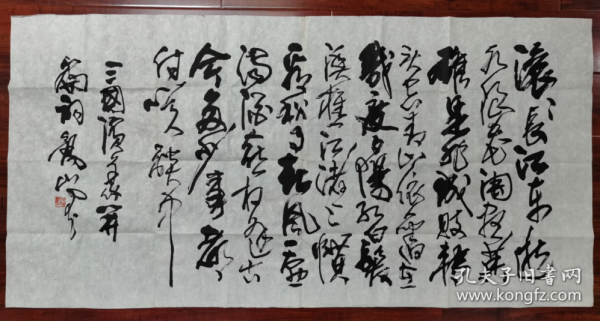 滚滚长江东逝
水浪花淘尽英
雄是非成败转
头空青山依旧在
几度夕阳红白发
渔樵江渚上惯
看秋月春风一壶
浊酒喜相逢古
今多少事都
付笑谈中
三国演义开
篇词
孔夫子旧书网
www.kongfz.com